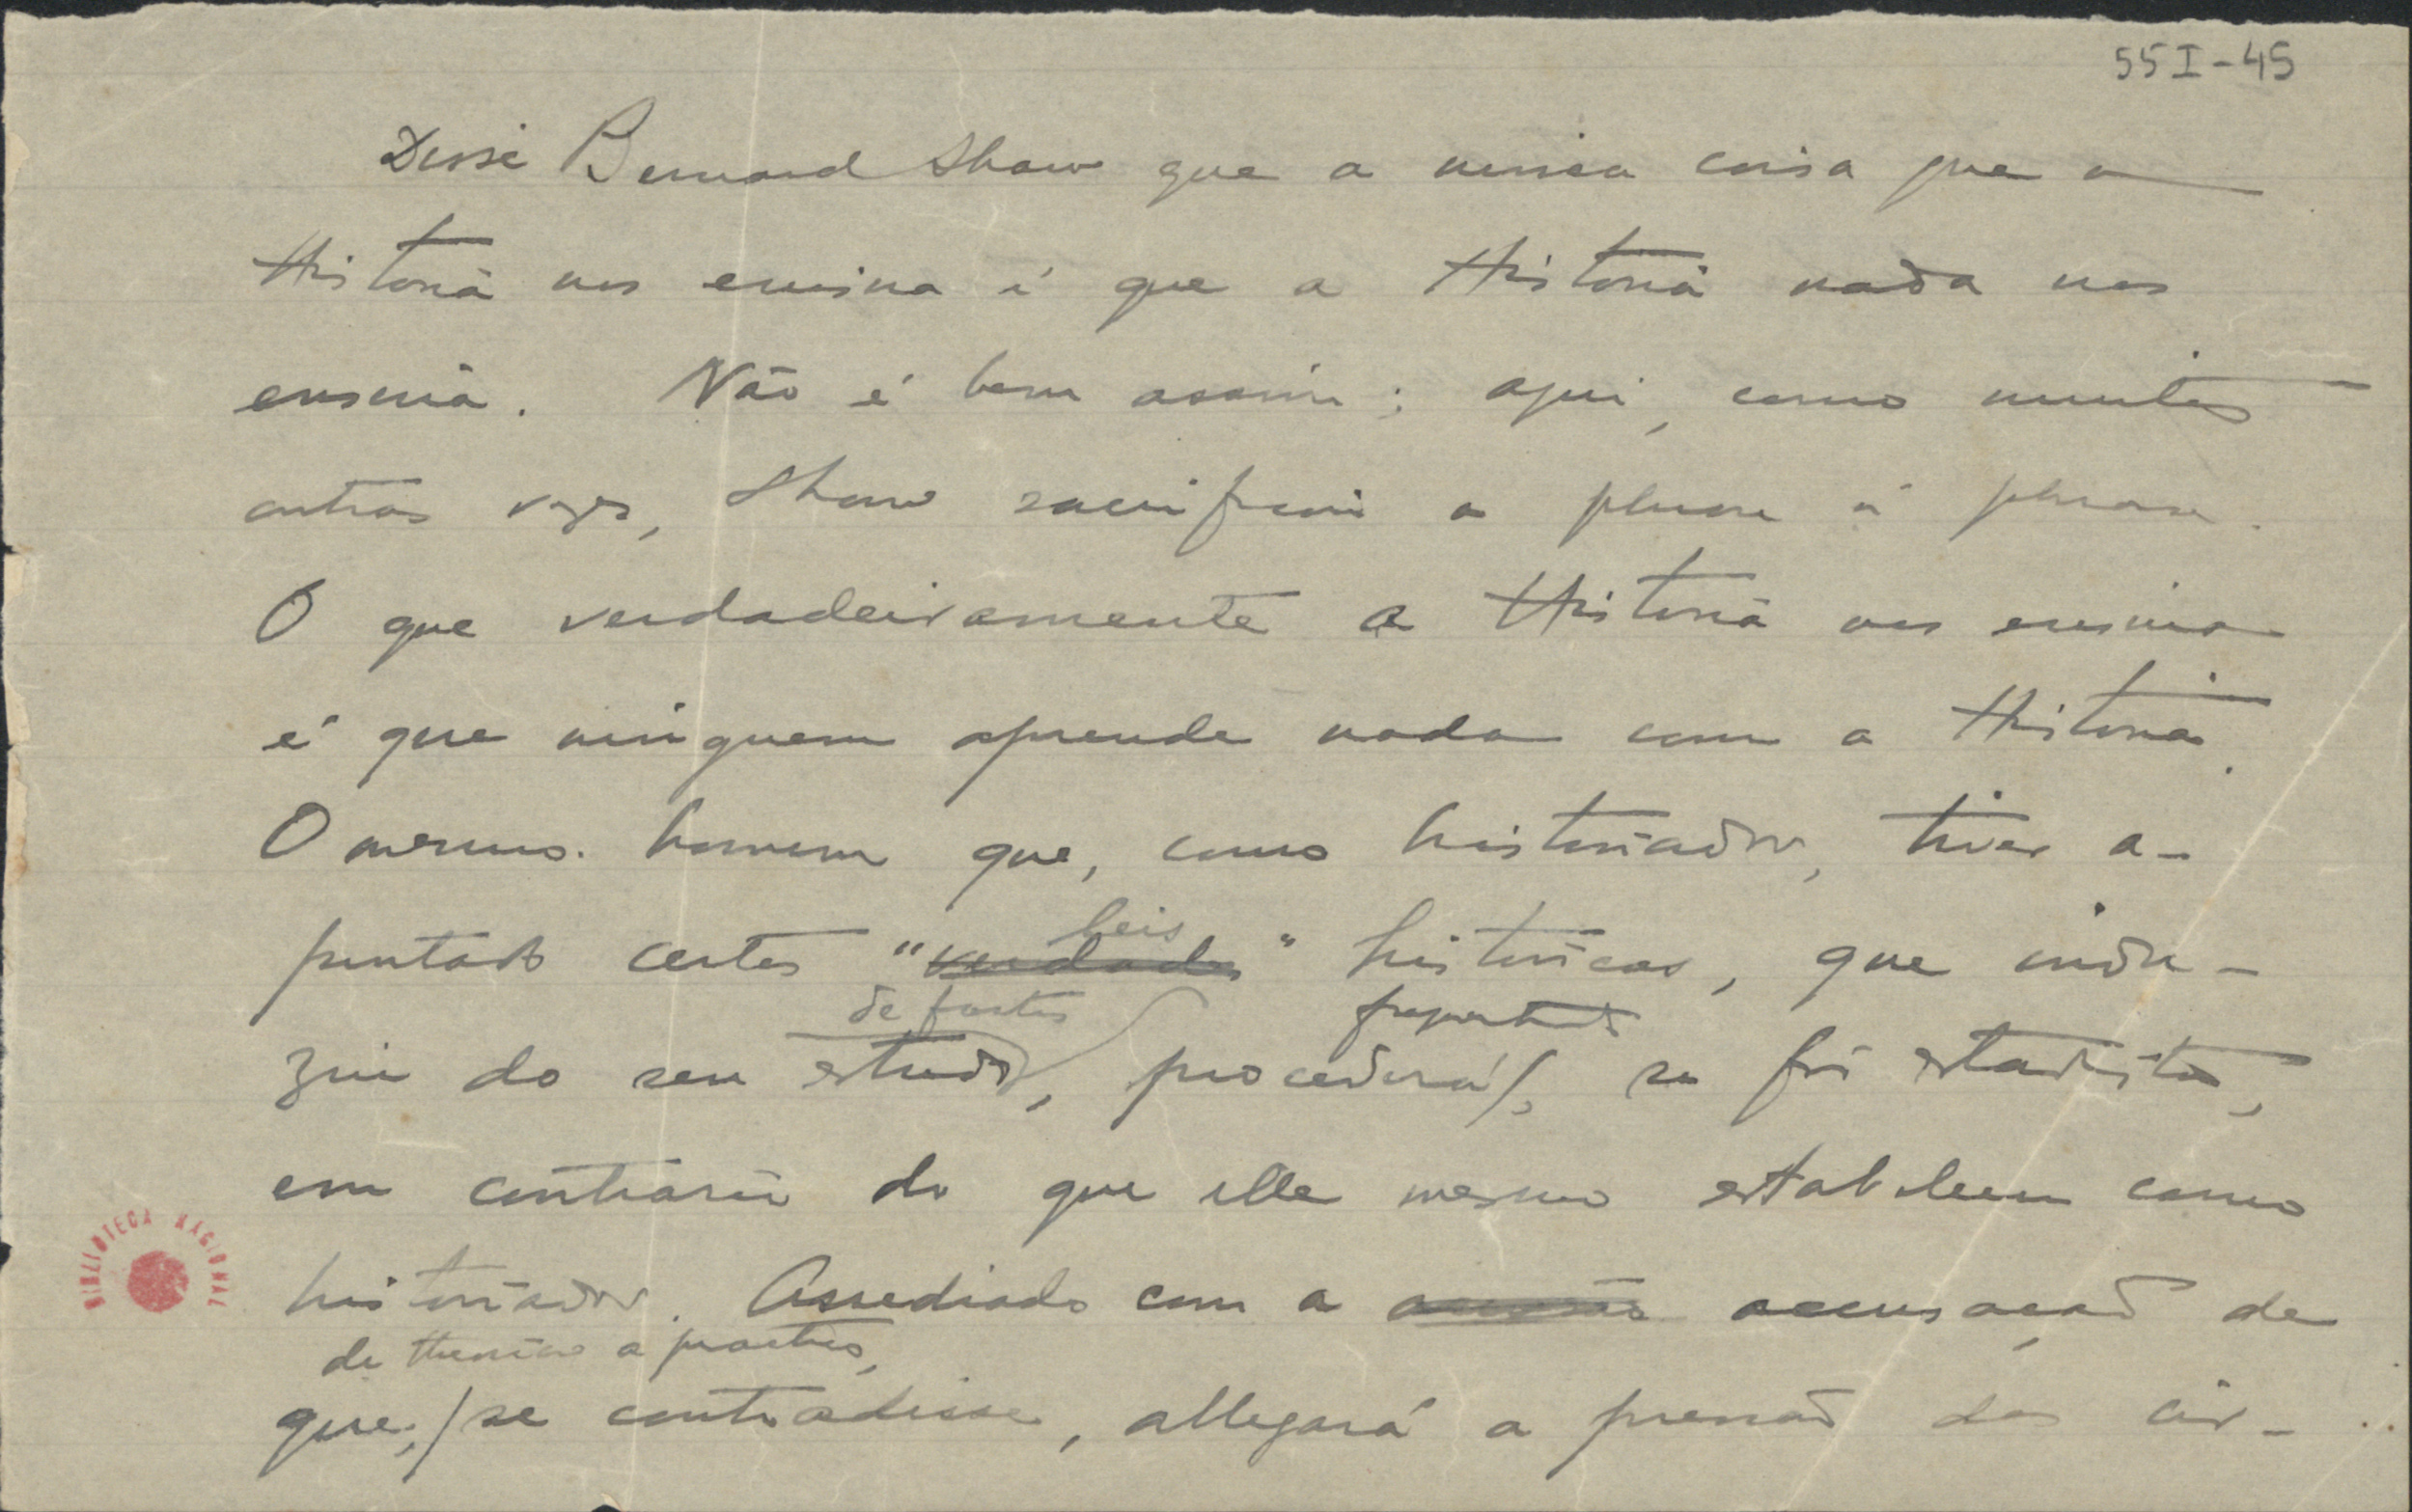 55I-45
Disse Bernard Shaw que a unica coisa que a
Historia nos ensina é que a Historia nada nos
ensina. Não é bem assim; aqui, como muitas
outras vezes, Shaw sacrificou a phrase á phrase.
O que verdadeiramente a Historia nos ensina
é que ninguem aprende nada com a Historia.
O mesmo homem que, como historiador, tiver a-
leis
pontado certas "verdades" historicas, que indu-
de factos frequentemente
ziu do seu estudo, procederá, se fôr estadista,
em contrario do que elle mesmo estabeleceu como
historiador. Assediado com a accusação de
de theorico a practico,
que, se contradisse, allegará a pressão das cir-
BIBLIOTECA NACIONAL